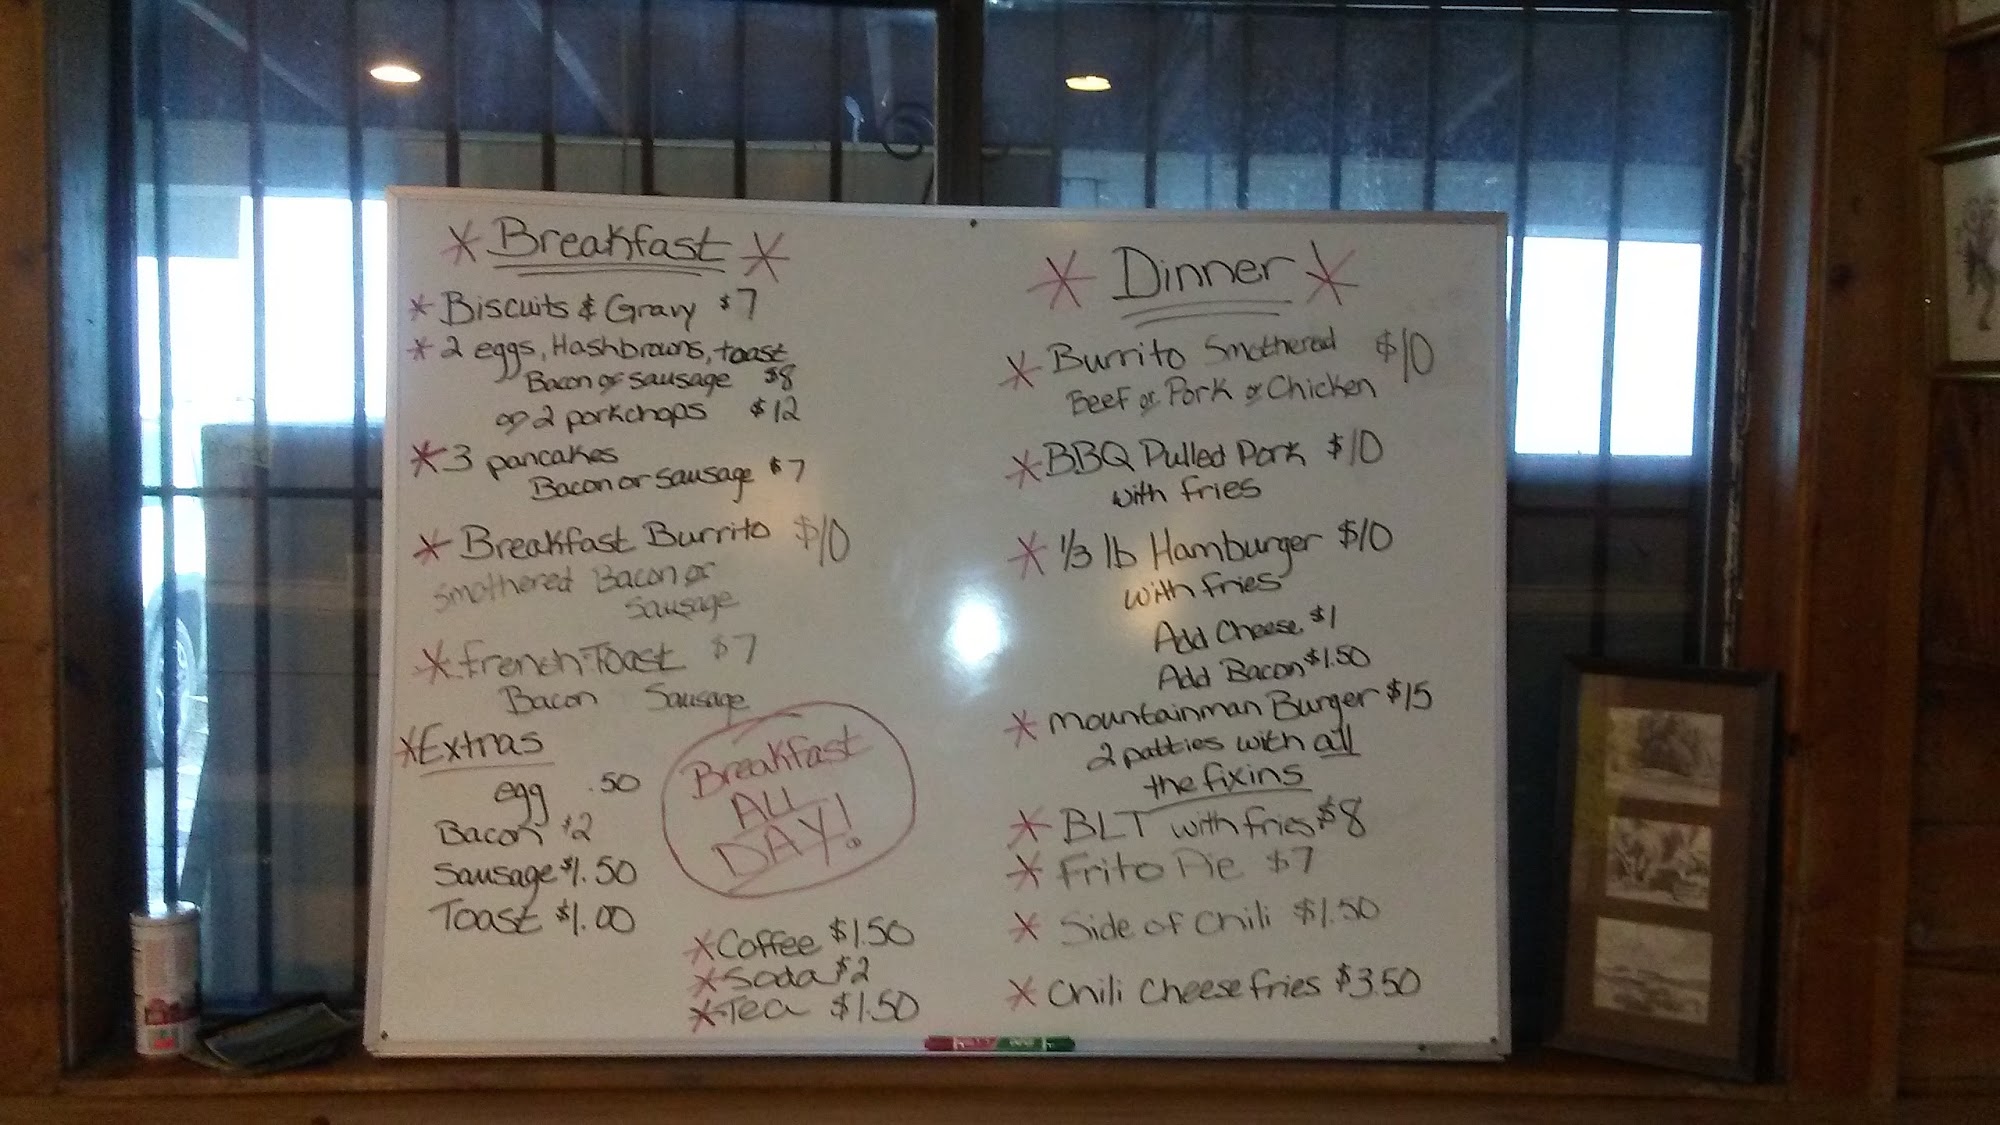 * Breakfast *
* Biscuits & Gravy $7
* 2 eggs, Hashbrowns, toast
Bacon or sausage $8
or 2 porkchops $12
* 3 pancakes
Bacon or sausage $7
* Breakfast Burrito $10
Smothered Bacon or
Sausage
* French Toast $7
Bacon Sausage
* Extras
egg .50
Bacon $2
Sausage $1.50
Toast $1.00
Breakfast
ALL
DAY!
* Coffee $1.50
* Soda $2
* Tea $1.50
* Dinner *
* Burrito Smothered $10
Beef or Pork or Chicken
* BBQ Pulled Pork $10
with fries
* 1/3 lb Hamburger $10
with fries
Add Cheese $1
Add Bacon $1.50
* Mountainman Burger $15
2 patties with all
the fixins
* BLT with fries $8
* Frito Pie $7
* Side of Chili $1.50
* Chili Cheese fries $3.50